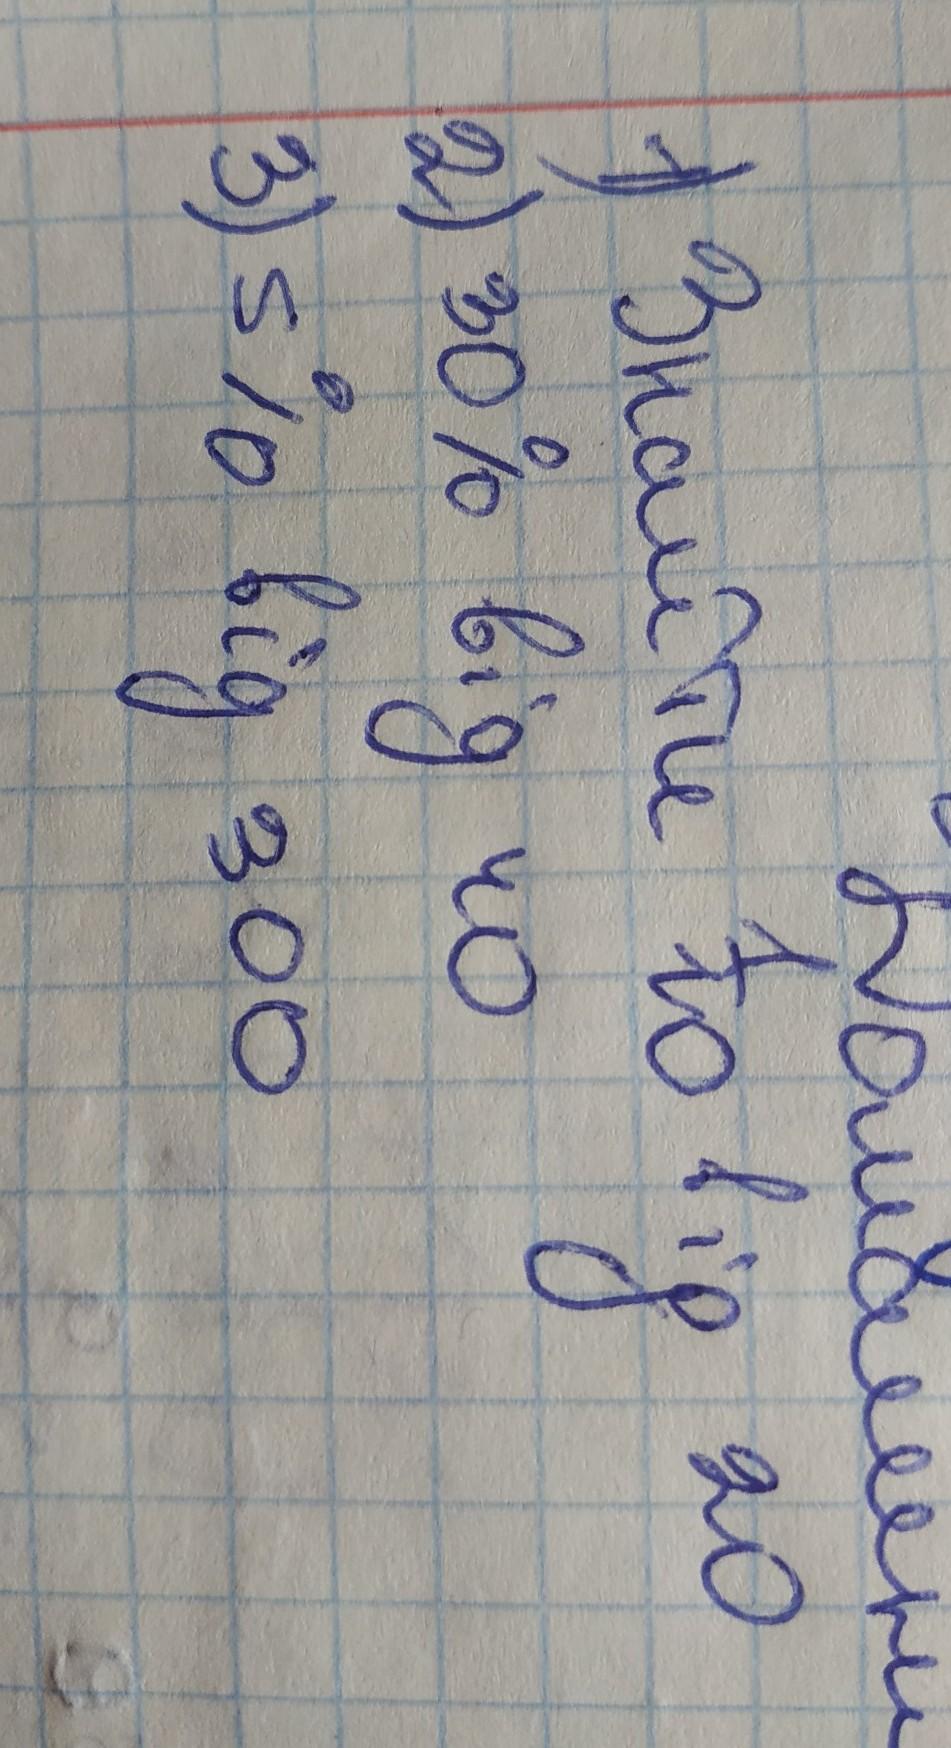 1) Знайти 10 від 20
2) 30% від 40
3) 5% від 300